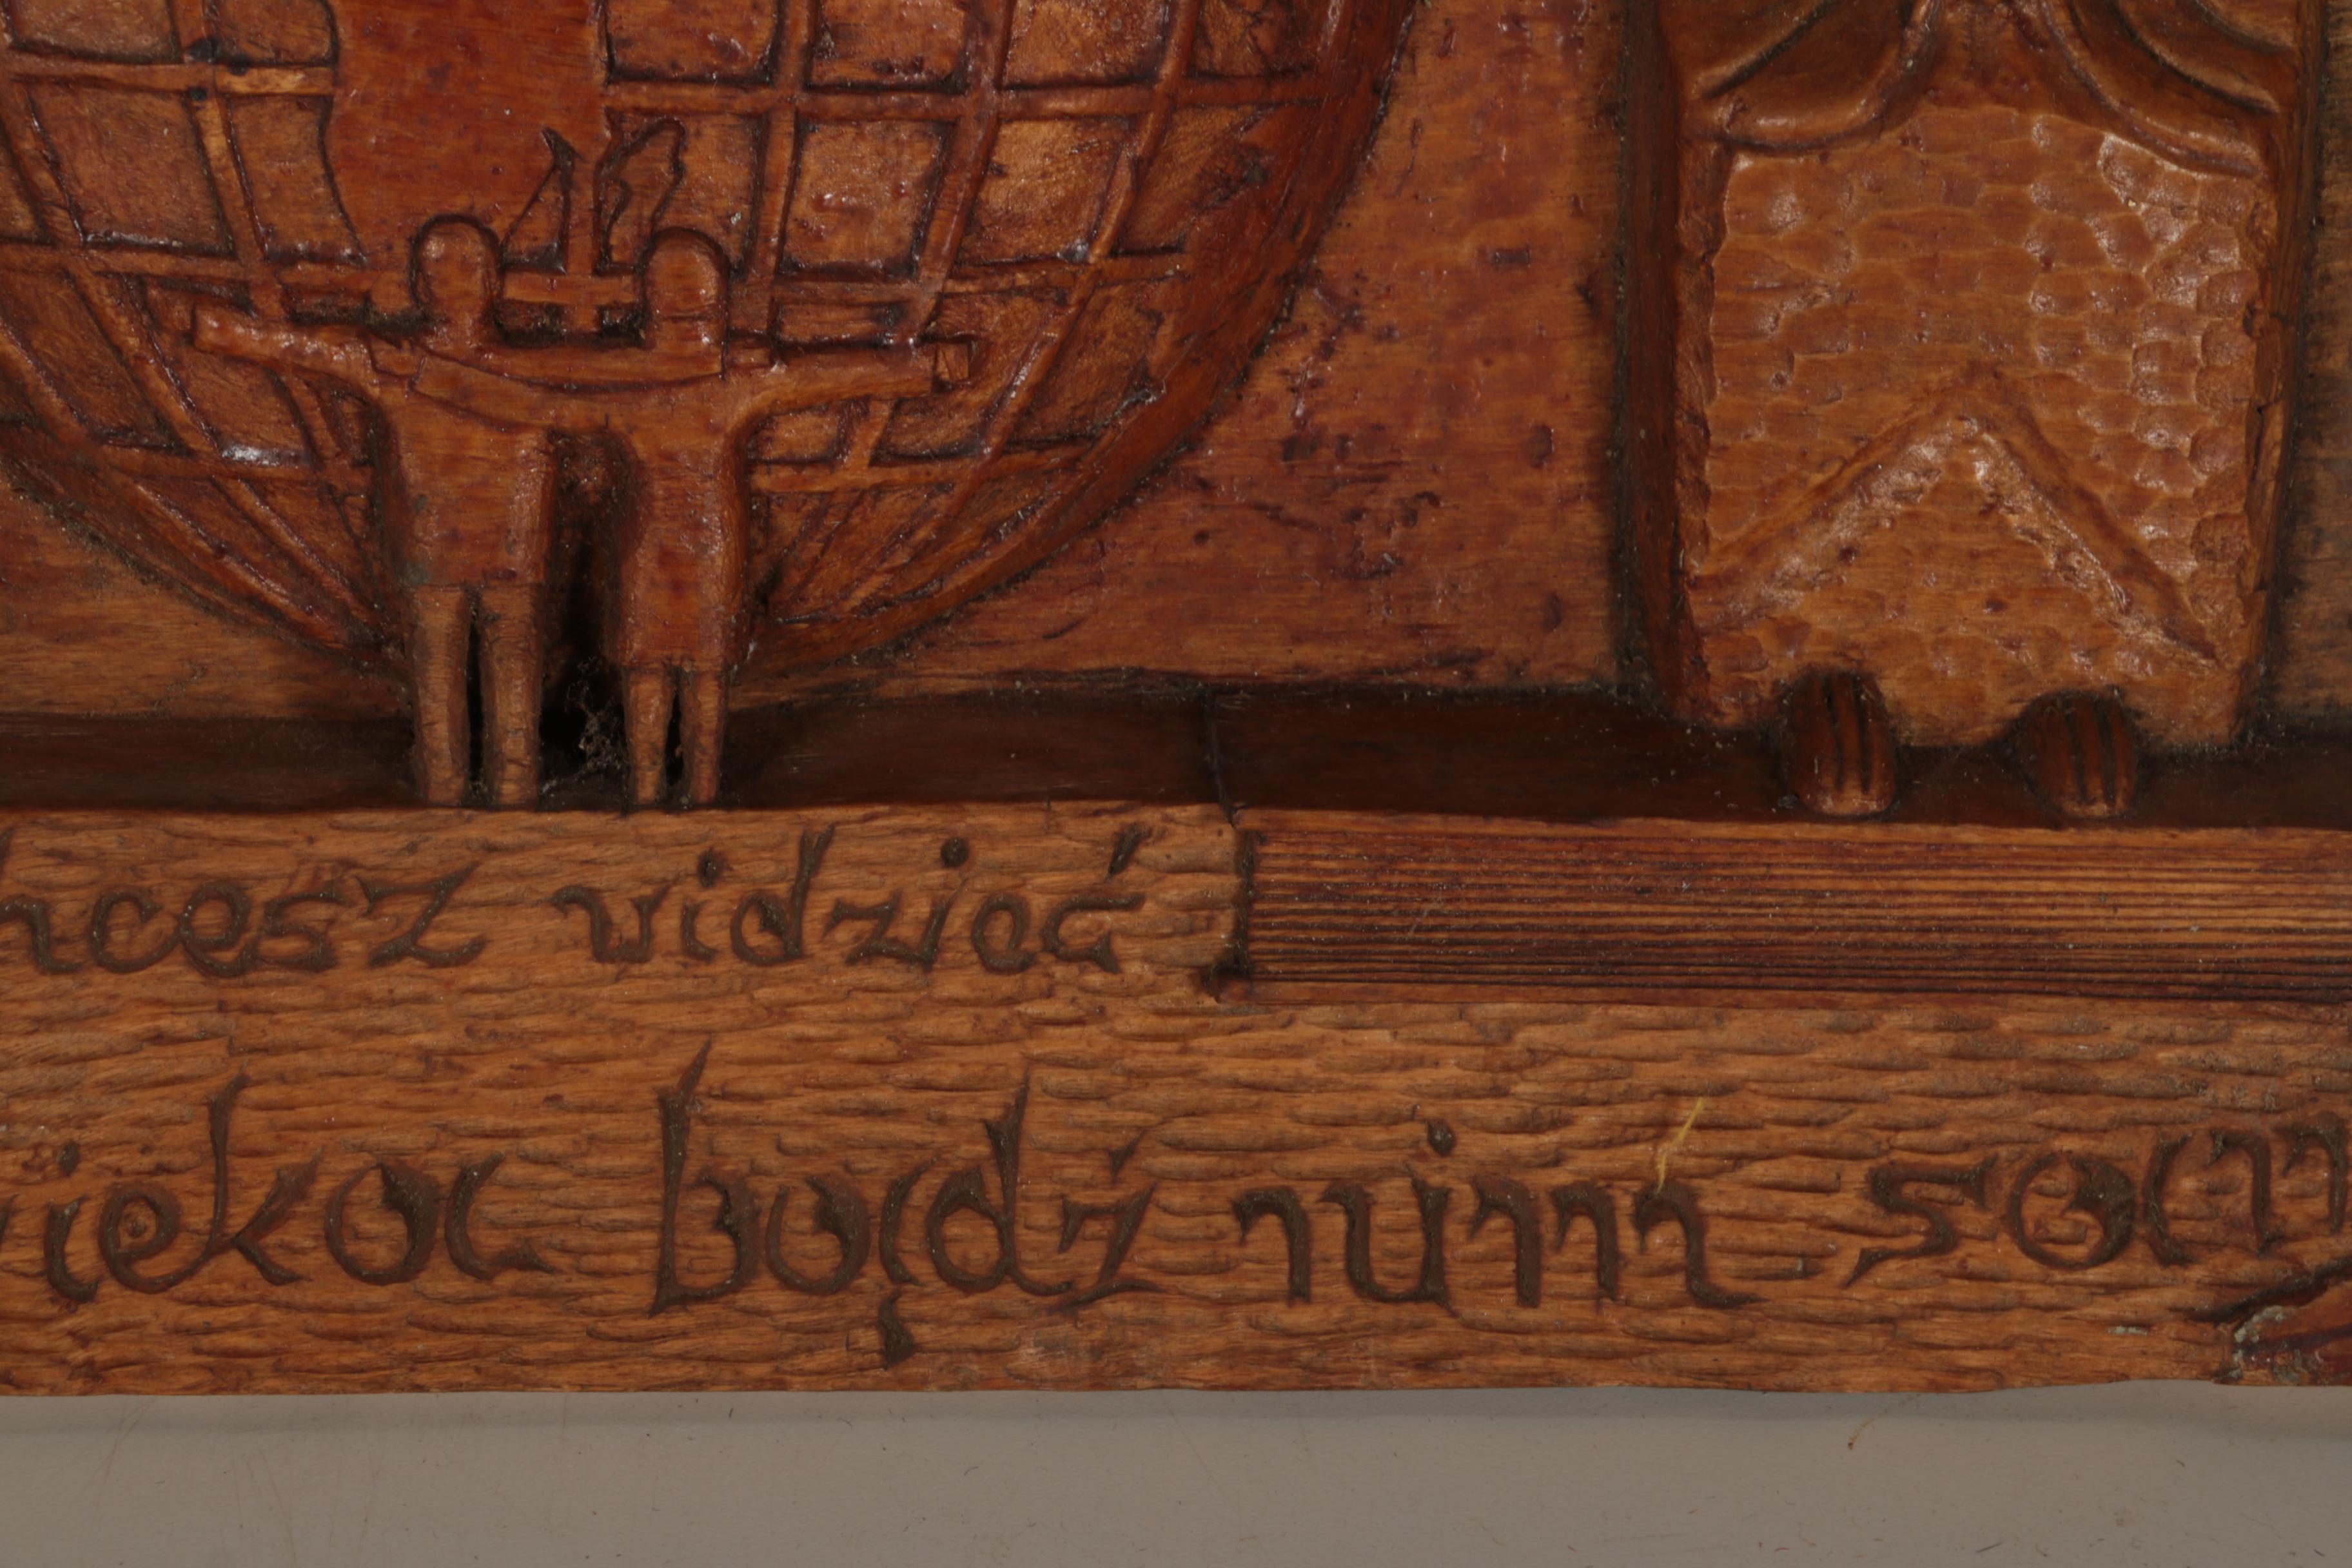 hcesz vidzieć
wieka bądź nim sam